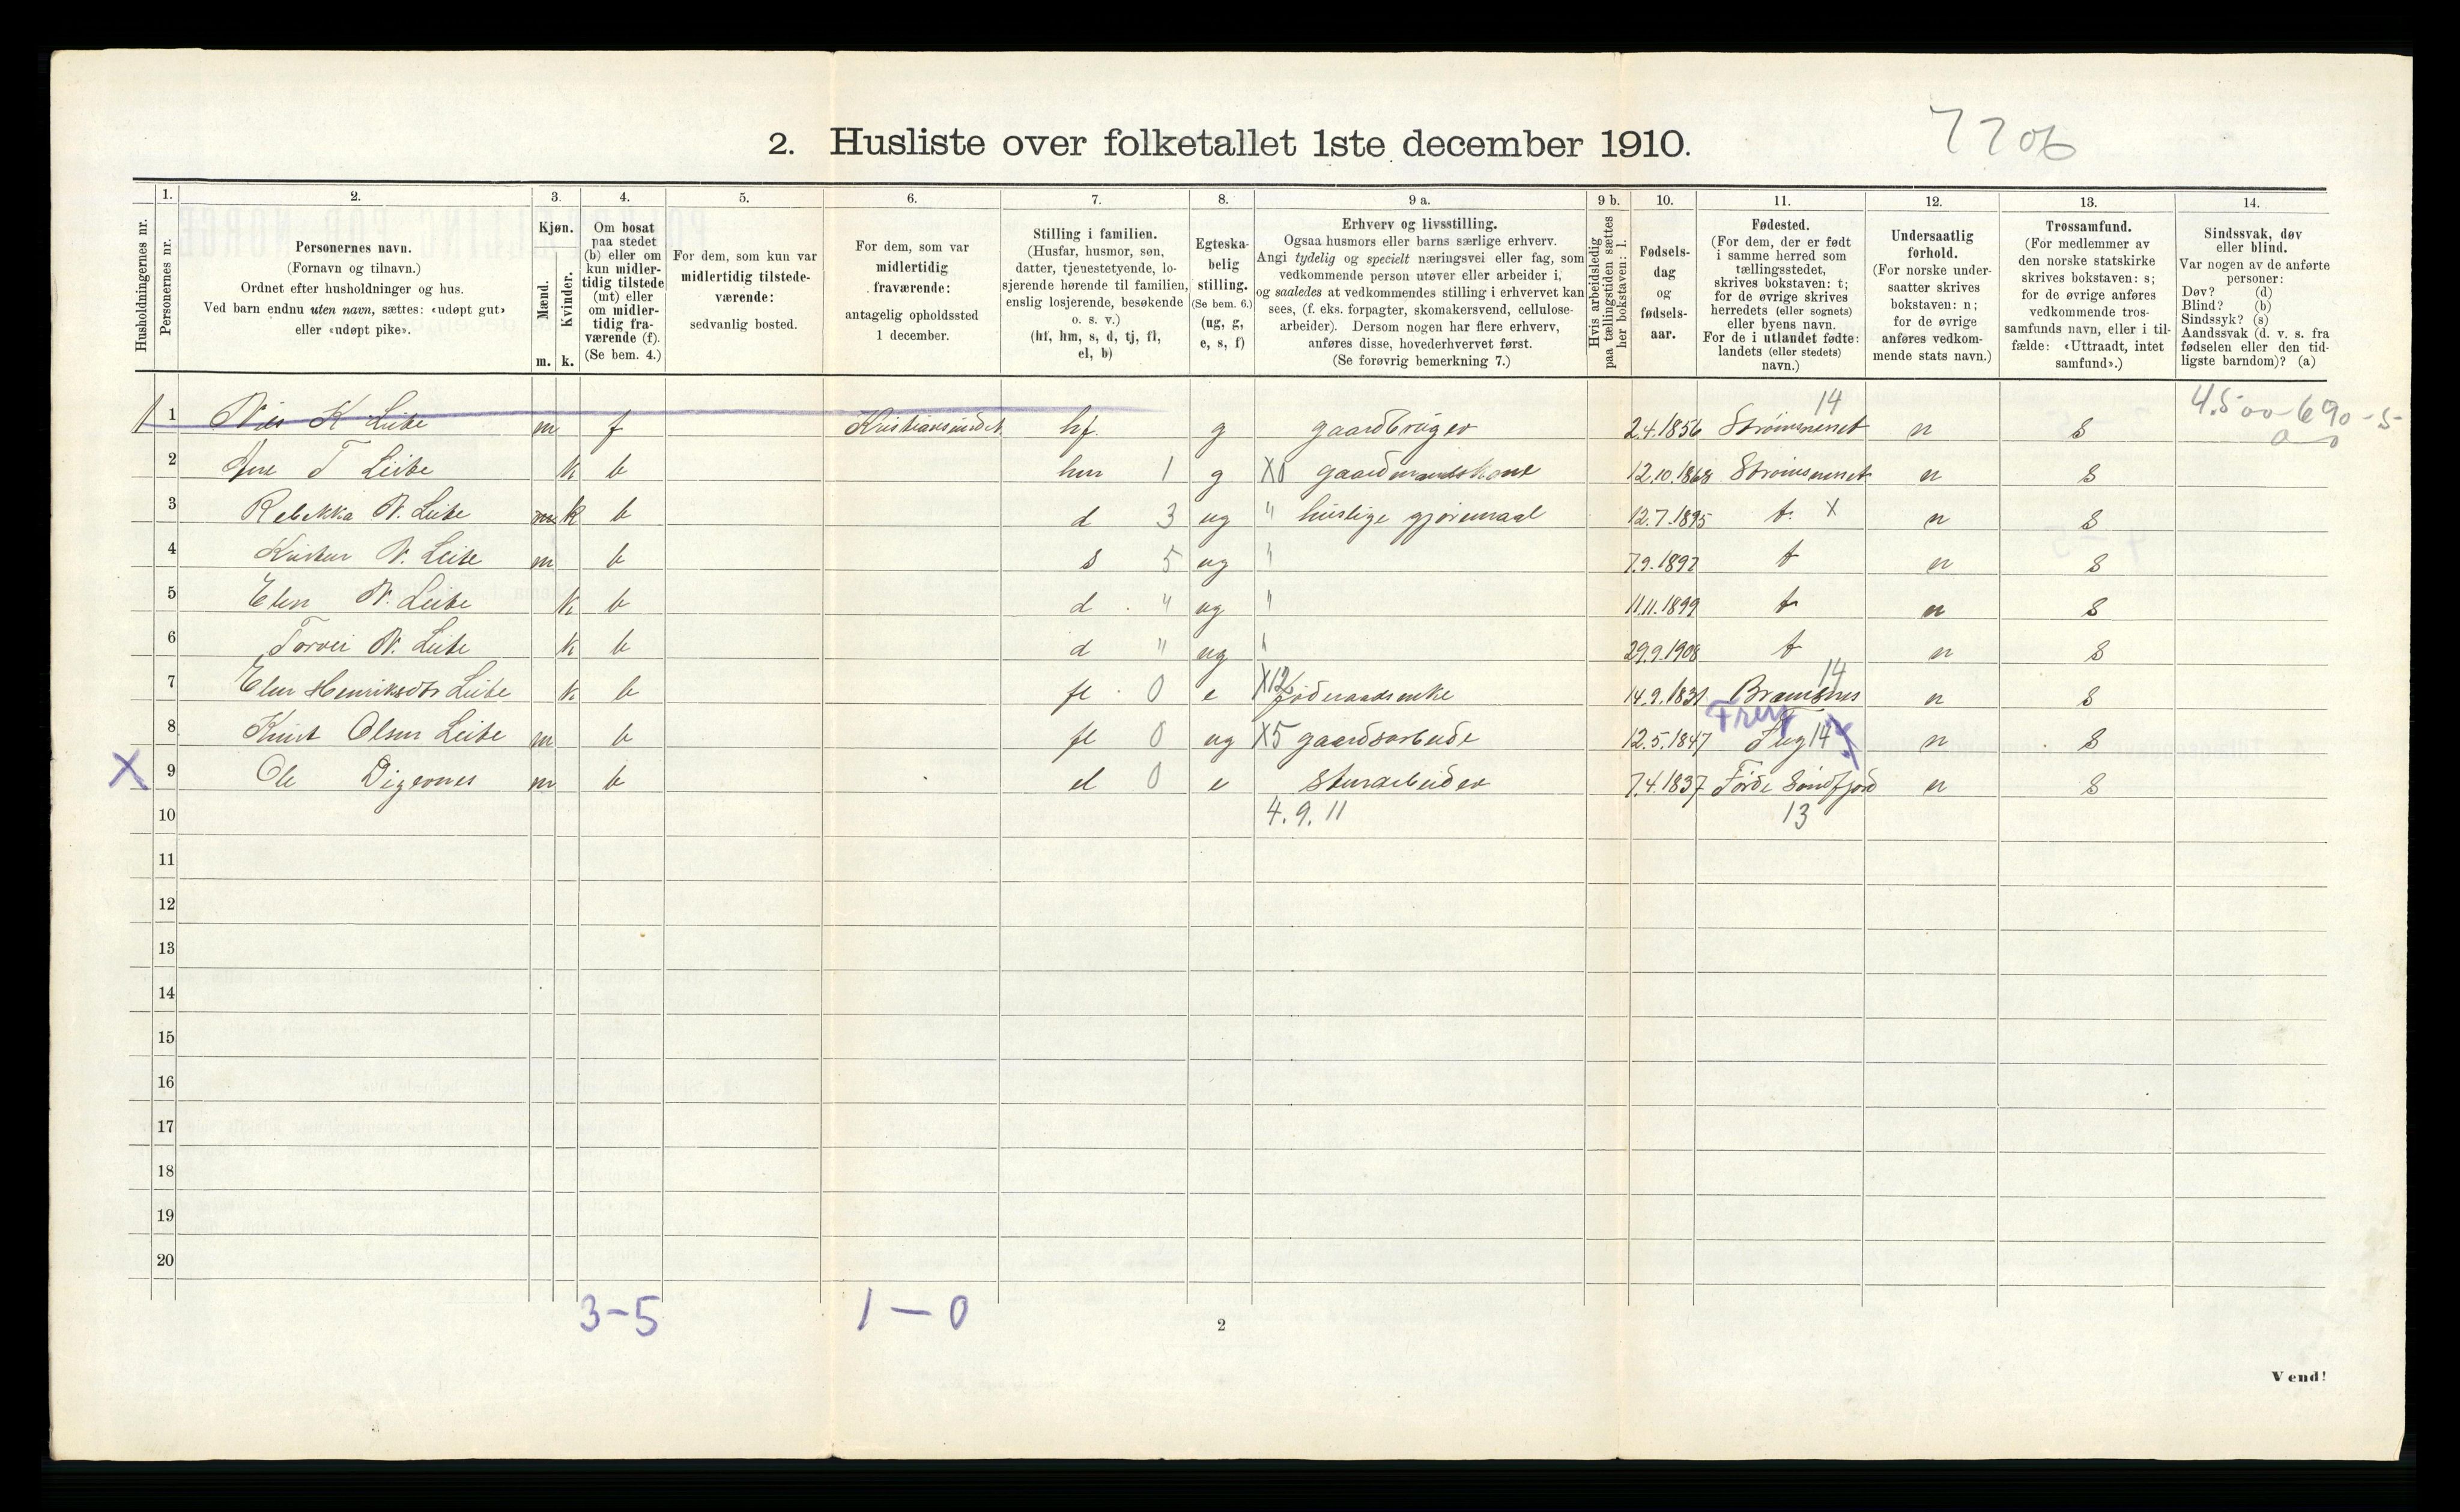 7706
2. Husliste over folketallet 1ste december 1910.
Husholdningernes nr.
1. Personernes nr.
2. Personernes navn.
(Fornavn og tilnavn.)
Ordnet efter husholdninger og hus.
Ved barn endnu uten navn, sættes: «udøpt gut»
eller «udøpt pike».
3. Kjøn.
Mænd. m.
Kvinder. k.
4. Om bosat
paa stedet
(b) eller om
kun midler-
tidig tilstede
(mt) eller
om midler-
tidig fra-
værende (f).
(Se bem. 4.)
5. For dem, som kun var
midlertidig tilstede-
værende:
sedvanlig bosted.
6. For dem, som var
midlertidig
fraværende:
antagelig opholdssted
1 december.
7. Stilling i familien.
(Husfar, husmor, søn,
datter, tjenestetyende, lo-
sjerende hørende til familien,
enslig losjerende, besøkende
o. s. v.)
(hf, hm, s, d, tj, fl,
el, b)
8. Egteska-
belig
stilling.
(Se bem. 6.)
(ug, g,
e, s, f)
9 a. Erhverv og livsstilling.
Ogsaa husmors eller barns særlige erhverv.
Angi tydelig og specielt næringsvei eller fag, som
vedkommende person utøver eller arbeider i,
og saaledes at vedkommendes stilling i erhvervet kan
sees, (f. eks. forpagter, skomakersvend, cellulose-
arbeider). Dersom nogen har flere erhverv,
anføres disse, hovederhvervet først.
(Se forøvrig bemerkning 7.)
9 b. Hvis arbeidsledig
paa tællingstiden sættes
her bokstaven: l.
10. Fødsels-
dag
og
fødsels-
aar.
11. Fødested.
(For dem, der er født
i samme herred som
tællingsstedet,
skrives bokstaven: t;
for de øvrige skrives
herredets (eller sognets)
eller byens navn.
For de i utlandet fødte:
landets (eller stedets)
navn.)
12. Undersaatlig
forhold.
(For norske under-
saatter skrives
bokstaven: n;
for de øvrige
anføres vedkom-
mende stats navn.)
13. Trossamfund.
(For medlemmer av
den norske statskirke
skrives bokstaven: s;
for de øvrige anføres
vedkommende tros-
samfunds navn, eller i til-
fælde: «Uttraadt, intet
samfund».)
14. Sindssvak, døv
eller blind.
Var nogen av de anførte
personer:
Døv? (d)
Blind? (b)
Sindssyk? (s)
Aandssvak (d. v. s. fra
fødselen eller den tid-
ligste barndom)? (a)
14 4.500-690-5-
0-0
1 Nils K Leite m f Kristiansund N hf. g gaardbruger 2.4.1856 Strømsneset n s
2 Ane T Leite k b hm 1 g X0 gaardmandskone 12.10.1868 Strømsneset n s
3 Rebekka N. Leite m k b d 3 ug " huslige gjøremaal 12.7.1895 t. X n s
4 Kristen N. Leite m b s 5 ug " 7.9.1897 t n s
5 Elen N. Leite k b d " ug " 11.11.1899 t n s
6 Torvei N. Leite k b d " ug " 29.9.1908 t n s
14
7 Elen Henriksdtr Leite k b fl 0 e X12 føderaadsenke 14.9.1831 Bremsnes n s
Frey
8 Knut Olsen Leite m b fl 0 ug X5 gaardsarbeide 12.5.1847 14 n s
X 9 Ole Digernes m b el 0 e Stenarbeider 7.4.1837 Førde Søndfjord n s
10 4.9.11 13
11
12
13
14
15
16
17
18
19
20
3-5 1-0
2
Vend!